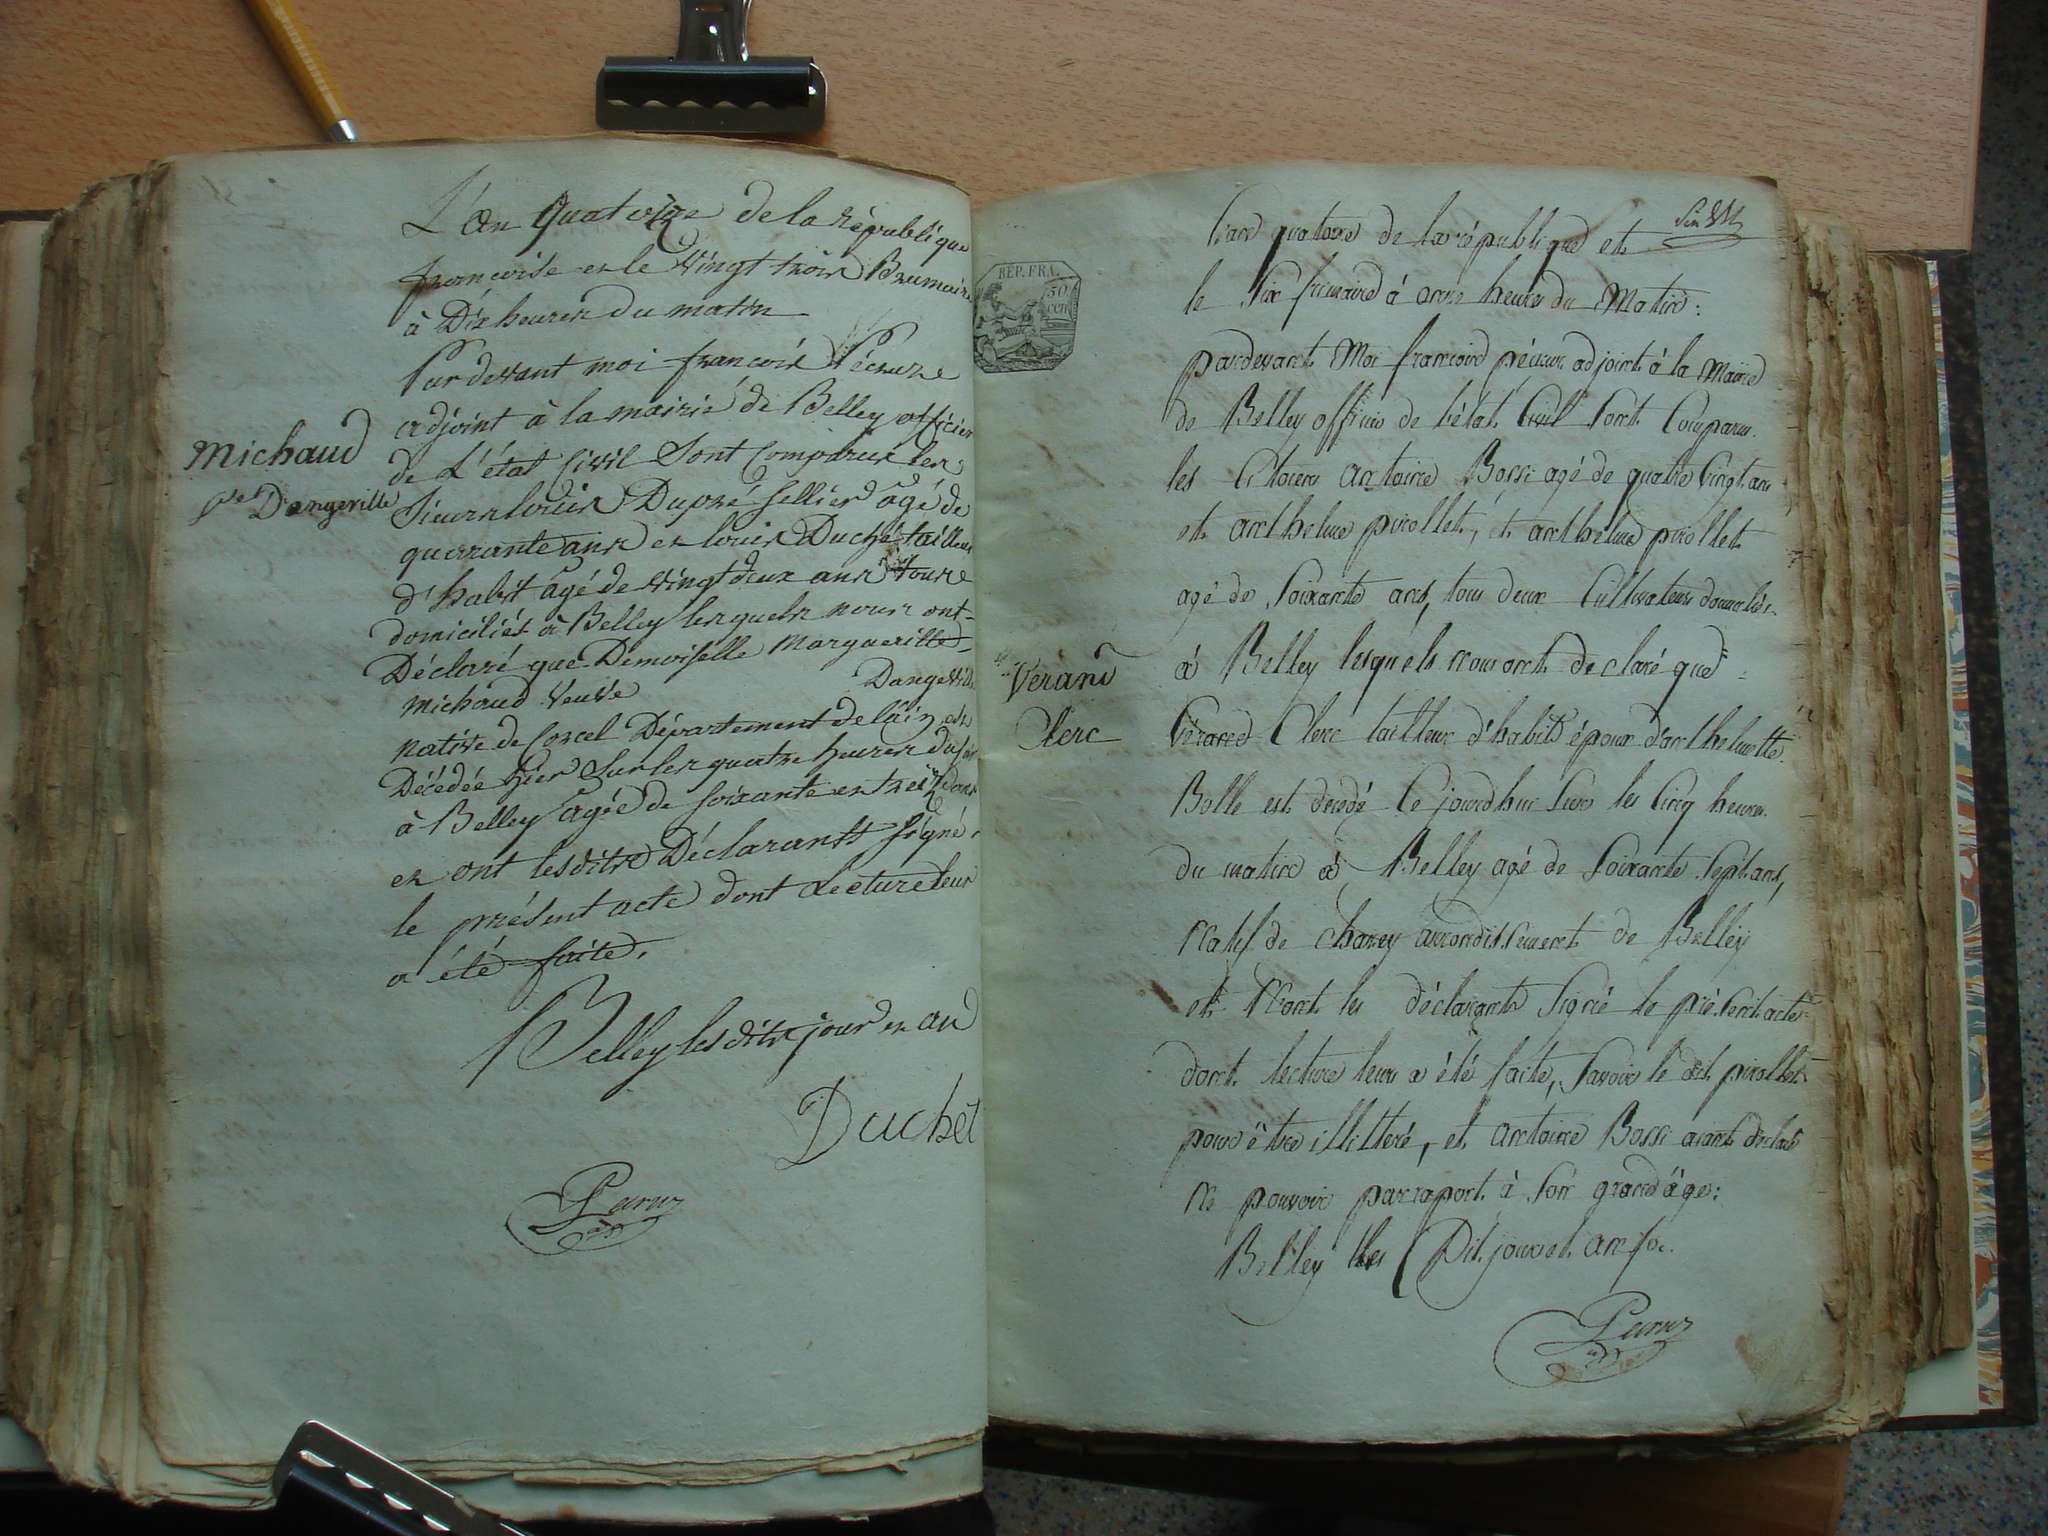 L'an quatorze de la république
françoise et le vingt trois Brumaire
à Dix heures du matin
Pardevant moi françois Pécruz
adjoint à la mairie de Belley officier
de L'état Civil Sont Comparus les
Michaud
ve Dangeville
Sieurs louis Dupré sellier âgé de
quarante ans et louis Duchet tailleur
d'habit âgé de vingt deux ans tous
domiciliés à Belley lesquels nous ont
Déclaré que Demoiselle Marguerite
Michaud veuve Dangeville
native de Corcel Département de l'ain est
Décédée hier sur les quatre heures du soir
à Belley agée de soixante et treize ans
et ont lesdits Déclarants signé
le présent acte dont Lecture leur
a été faite.
Belley les dits jour et an
Duchet
Pécruz
adjt
REP. FRA.
50
CEN
l'an quatorze de la république et
le Six frimaire à onze heures du Matin :
pardevant Moi françois pécruz adjoint à la Mairie
de Belley officier de l'état Civil sont Comparus
les Citoiens antoine Bossi agé de quatre vingt ans
et anthelme pirollet, et anthelme pirollet
agé de Soixante ans, tous deux Cultivateurs domiciliés
à Belley lesquels nous ont declaré que
Verand
Clerc
Vérand Clerc tailleur d'habits époux d'anthelmette
Bolle est decedé Ce jourdhui sur les Cinq heures
du matin à Belley agé de Soixante Sept ans,
natif de Chazey arrondissement de Belley
et N'ont les déclarants signé le présent acte
dont lecture leur a été faite, savoir le dit pirollet
pour être illitteré, et antoine Bossi aiant déclaré
ne pouvoir par raport à son grand âge :
Belley les Dit jour et an
Pécruz
adjt